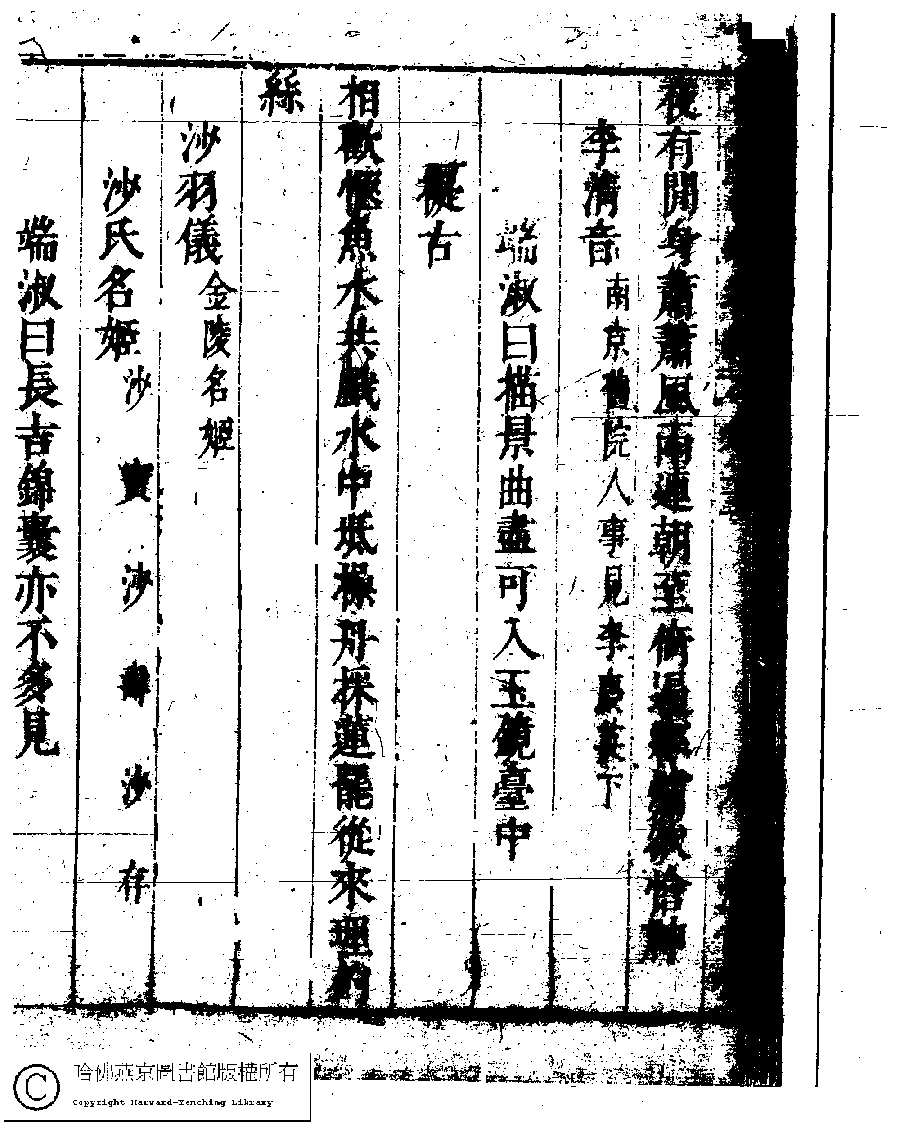 有閒身蕭蕭風雨連朝至
李清音 南京舊院人事見李 下
端淑曰描景曲盡可入玉鏡臺中
擬古
相歡愜魚水共戲水中坻操舟採蓮罷從來理釣
絲
沙羽儀 金陵名姬
沙氏名姬 沙 沙 沙 存
端淑曰長吉錦囊亦不多見
哈佛燕京圖書館版權所有
Copyright Harvard-Yenching Library